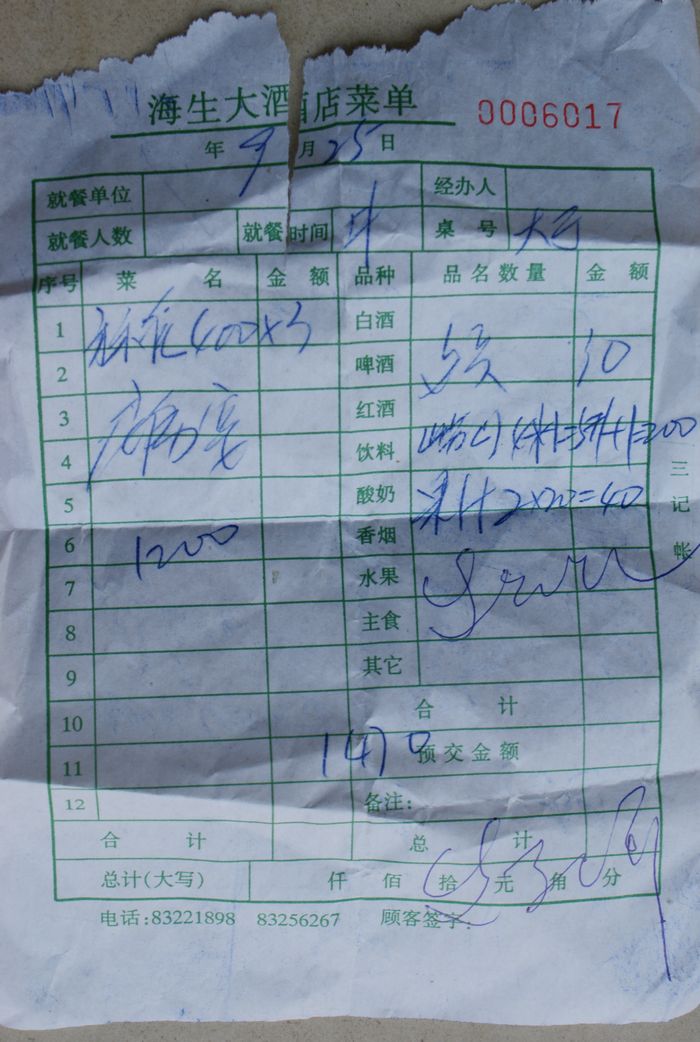 海生大酒店菜单 0006017
年 9 月 25 日
就餐单位 经办人
就餐人数 就餐时间 中 桌号 大厅
序号 菜名 金额 品种 品名数量 金额
1 标准400×3 白酒
2 啤酒 30
3 红酒
4 饮料 =200
5 酸奶 果汁2×20=40
6 1200 香烟
7 水果
8 主食
9 其它
10 合计
11 1470 预交金额
12 备注:
合计 总计
总计(大写) 仟 佰 拾 元 角 分
电话:83221898 83256267 顾客签字:
三记帐